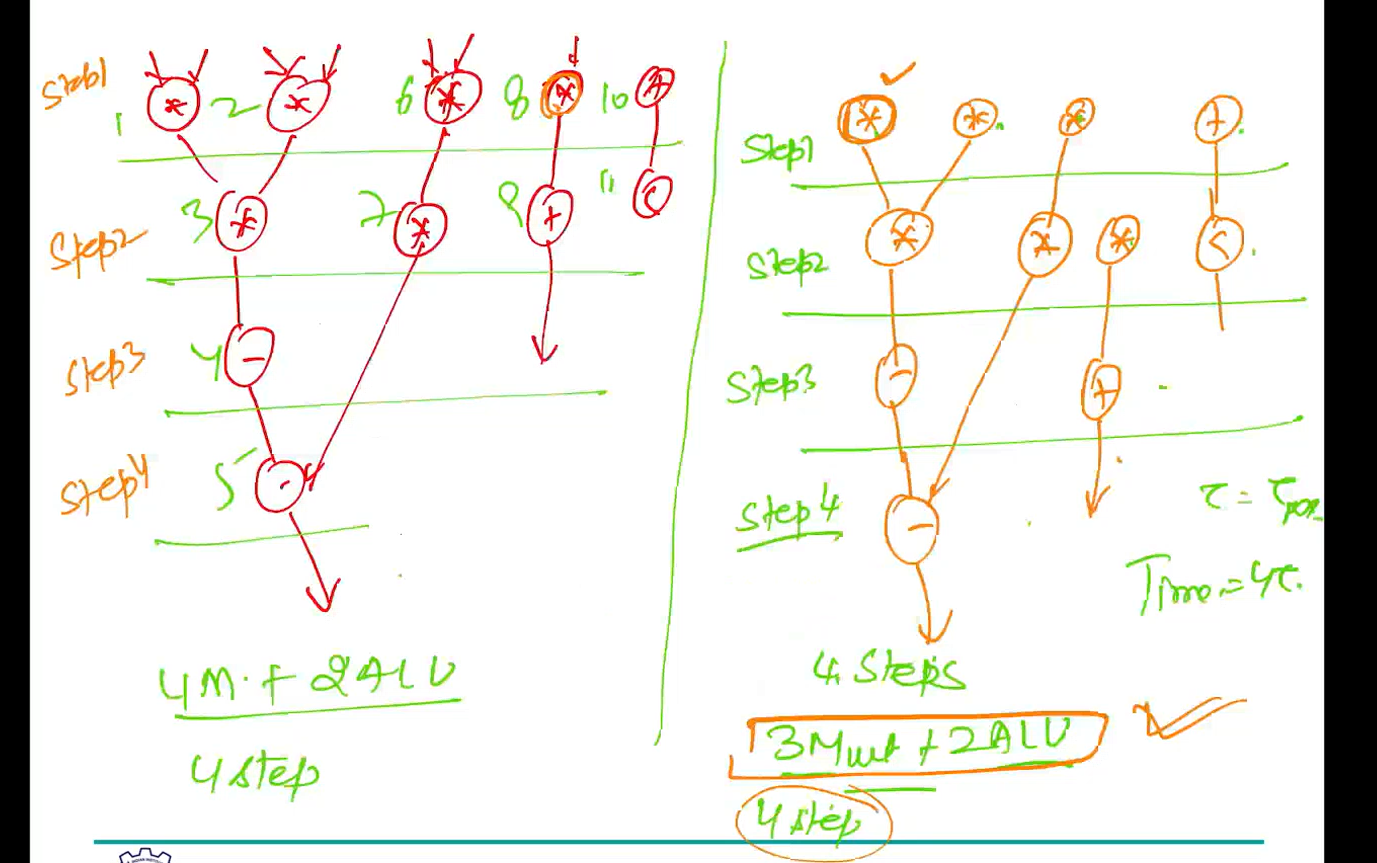 Step1
1 * 2 * 6 * 8 * 10 +
Step2
3 * 7 * 9 + 11 <
Step3
4 -
Step4
5 -
4M + 2ALU
4 step
Step1
* * * +
Step2
* * * <
Step3
- +
Step 4
-
τ =
Time = 4τ.
4 Steps
3Mult + 2ALU
4 step